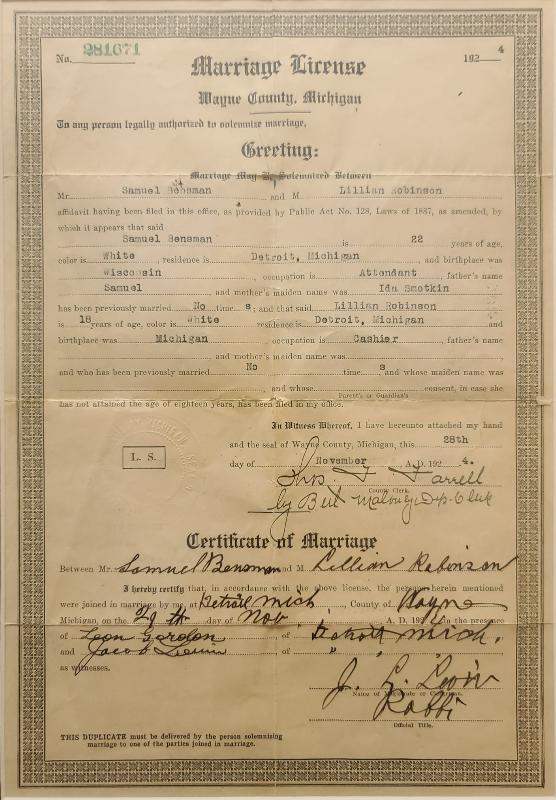 No. 281671
192 4
Marriage License
Wayne County, Michigan
To any person legally authorized to solemnize marriage,
Greeting:
Marriage May Be Solemnized Between
Mr. Samuel Bensman and M Lillian Robinson
affidavit having been filed in this office, as provided by Public Act No. 128, Laws of 1887, as amended, by
which it appears that said
Samuel Bensman is 22 years of age,
color is White residence is Detroit, Michigan and birthplace was
Wisconsin, occupation is Attendant, father's name
Samuel and mother's maiden name was Ida Smotkin
has been previously married No time s; and that said Lillian Robinson
is 18 years of age, color is White residence is Detroit, Michigan and
birthplace was Michigan occupation is Cashier, father's name
, and mother's maiden name was
and who has been previously married No time s and whose maiden name was
, and whose consent, in case she
Parent's or Guardian's
has not attained the age of eighteen years, has been filed in my office.
In Witness Whereof, I have hereunto attached my hand
and the seal of Wayne County, Michigan, this 28th
L. S.
day of November A. D. 192 4.
Thos. F. Farrell
County Clerk.
by Dep. Clerk
Certificate of Marriage
Between Mr. Samuel Bensman and M. Lillian Robinson
I hereby certify that, in accordance with the above license, the persons herein mentioned
were joined in marriage by me, at Detroit Mich, County of Wayne
Michigan, on the 29th day of Nov A. D. 192 in the presence
of Leon Gordon of Detroit Mich.
and Jacob Levin of " "
as witnesses.
J. L. Levin
Name of Magistrate or Clergyman.
Rabbi
Official Title.
THIS DUPLICATE must be delivered by the person solemnizing
marriage to one of the parties joined in marriage.